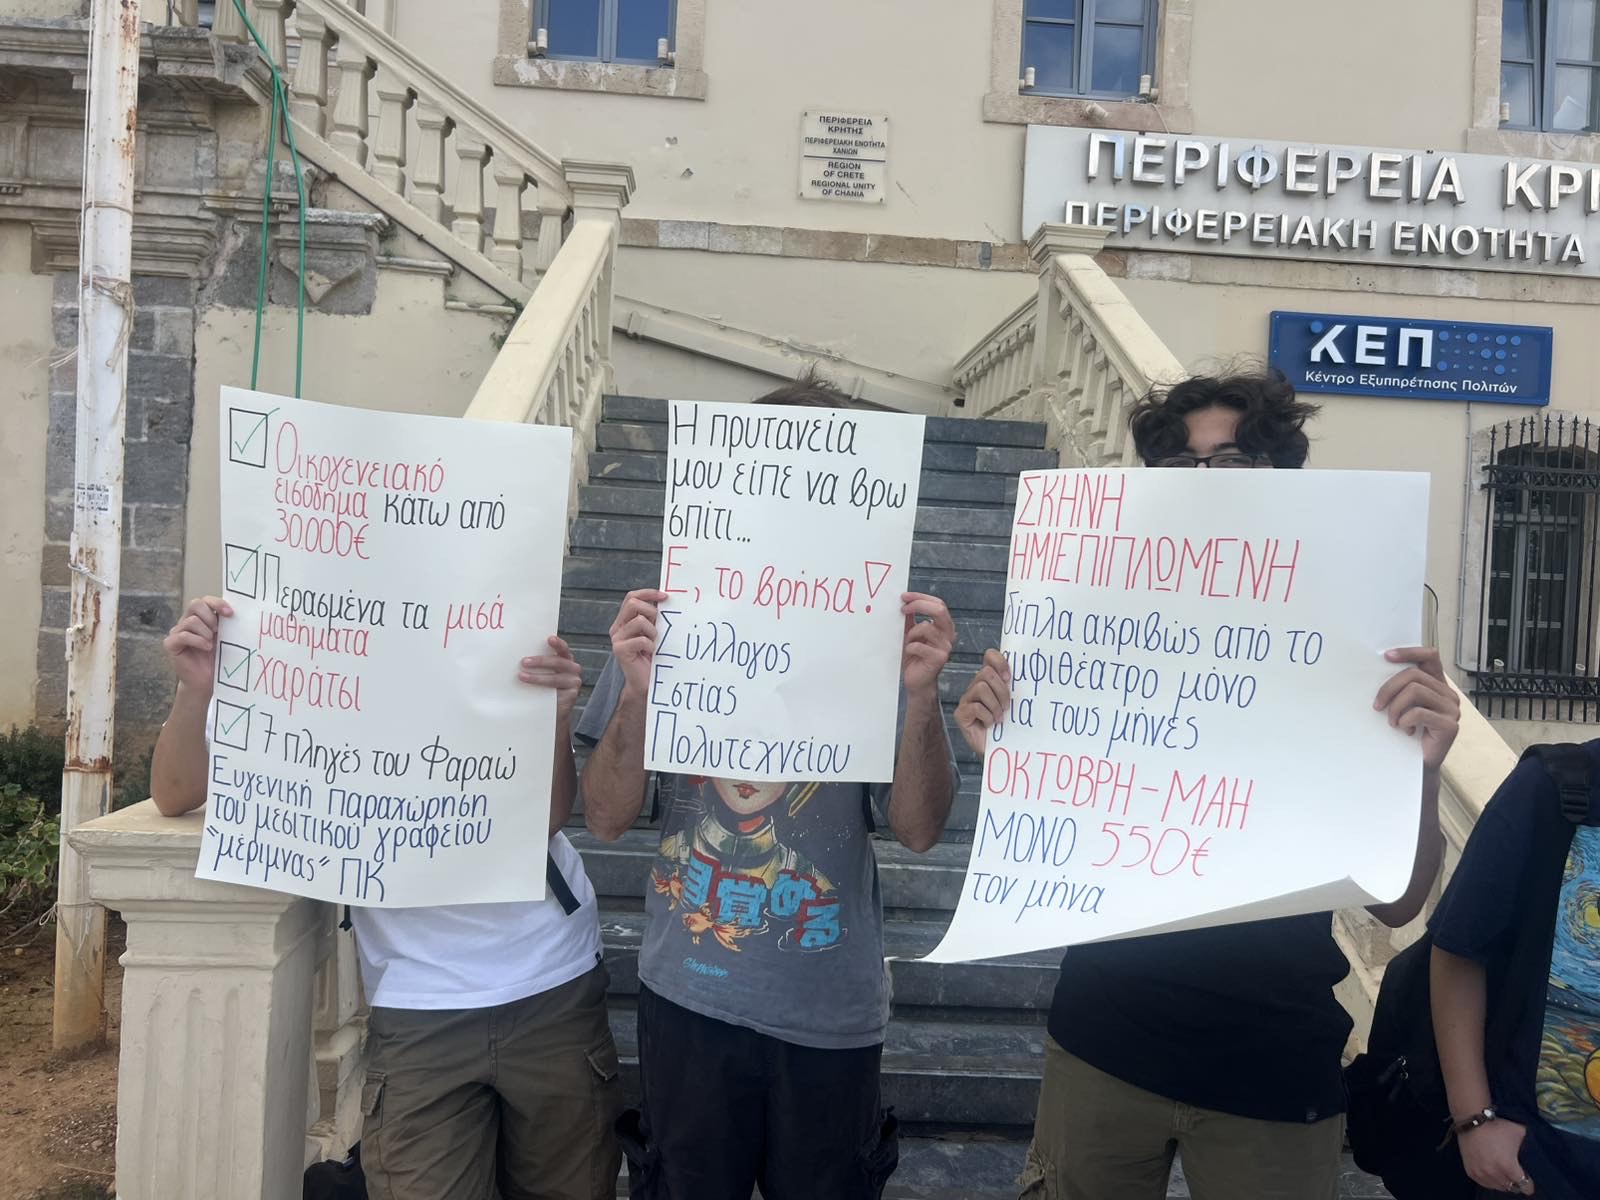 ΠΕΡΙΦΕΡΕΙΑ
ΚΡΗΤΗΣ
ΠΕΡΙΦΕΡΕΙΑΚΗ ΕΝΟΤΗΤΑ
ΧΑΝΙΩΝ
REGION
OF CRETE
REGIONAL UNITY
OF CHANIA
ΠΕΡΙΦΕΡΕΙΑ ΚΡΙ
ΠΕΡΙΦΕΡΕΙΑΚΗ ΕΝΟΤΗΤΑ
ΚΕΠ
Κέντρο Εξυπηρέτησης Πολιτών
Οικογενειακό
εισόδημα κάτω από
30.000€
Περασμένα τα μισά
μαθήματα
Χαράτσι
7 πληγές του Φαραώ
Ευγενική παραχώρηση
του μεσιτικού γραφείου
"μέριμνας" ΠΚ
Η πρυτανεία
μου είπε να βρω
σπίτι...
Ε, το βρήκα!
Σύλλογος
Εστίας
Πολυτεχνείου
ΣΚΗΝΗ
ΗΜΙΕΠΙΠΛΩΜΕΝΗ
δίπλα ακριβώς από το
αμφιθέατρο μόνο
για τους μήνες
ΟΚΤΩΒΡΗ-ΜΑΗ
ΜΟΝΟ 550€
τον μήνα